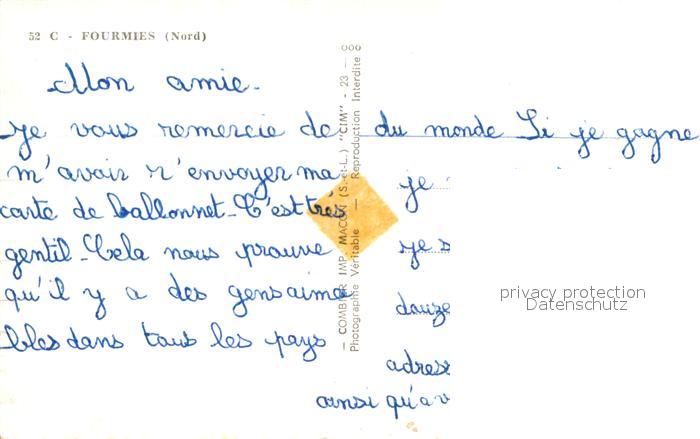 52 C - FOURMIES (Nord)
Mon amie.
Je vous remercie de
m'avoir r'envoyer ma
carte de ballonnet. C'est très
gentil. Cela nous prouve
qu'il y a des gens aima
bles dans tous les pays
du monde Si je gagne
je
je s
douze
adress
ainsi qu'a v
— COMBIER IMP. MACON (S.-et-L.) "CIM" - 23 - 000
Photographie Véritable — Reproduction Interdite
privacy protection
Datenschutz